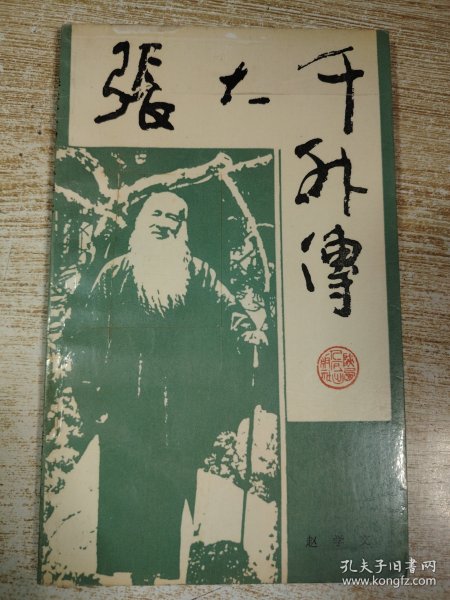 張大千外傳
赵学文
孔夫子旧书网
www.kongfz.com